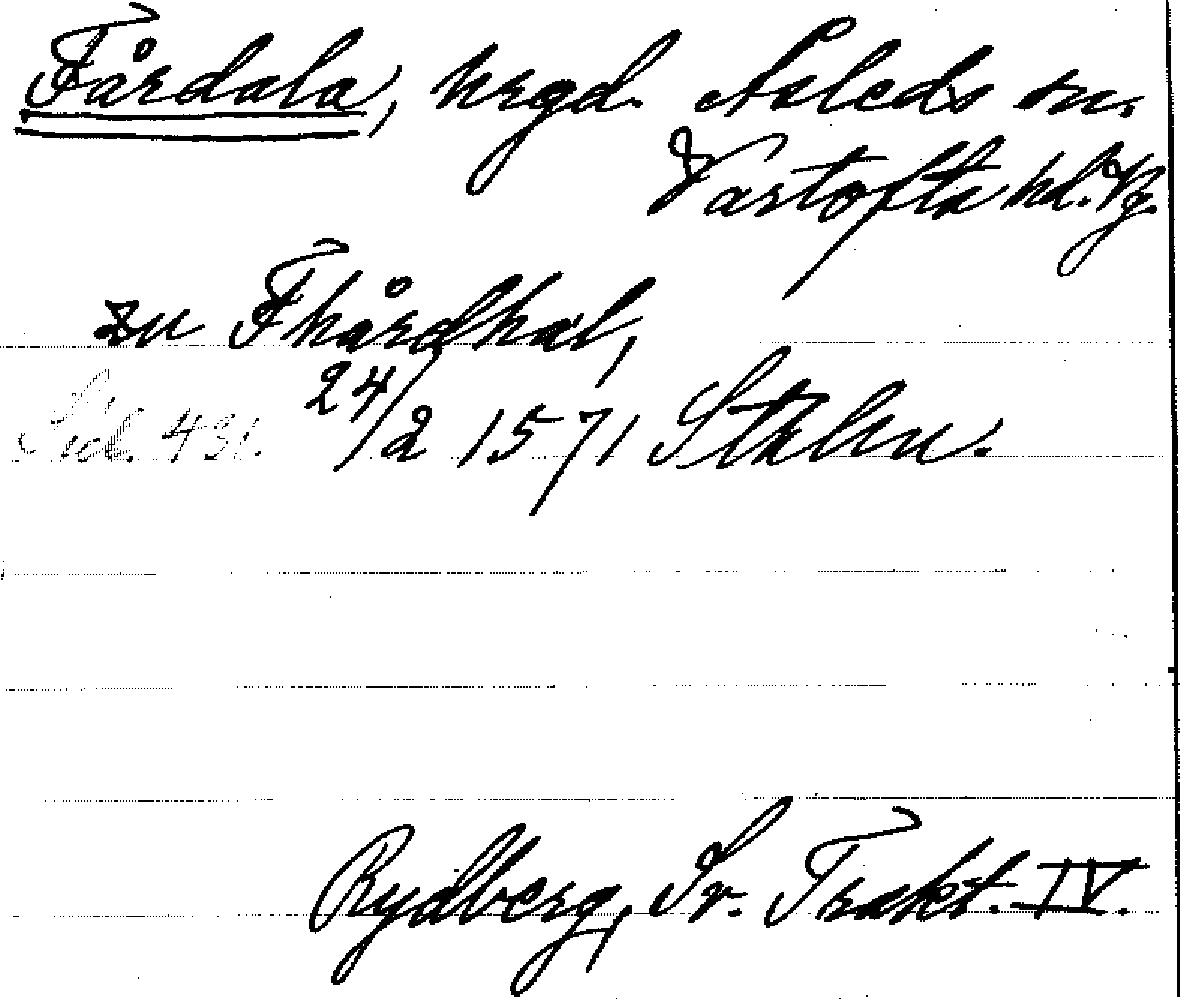 Fårdala, hrgd. Asleds sn.
Vartofta hd. Vg.
zu Fhårdhal,
24/2 1571 Sthlm.
Sid. 431.
Rydberg, Sv. Trakt. IV.